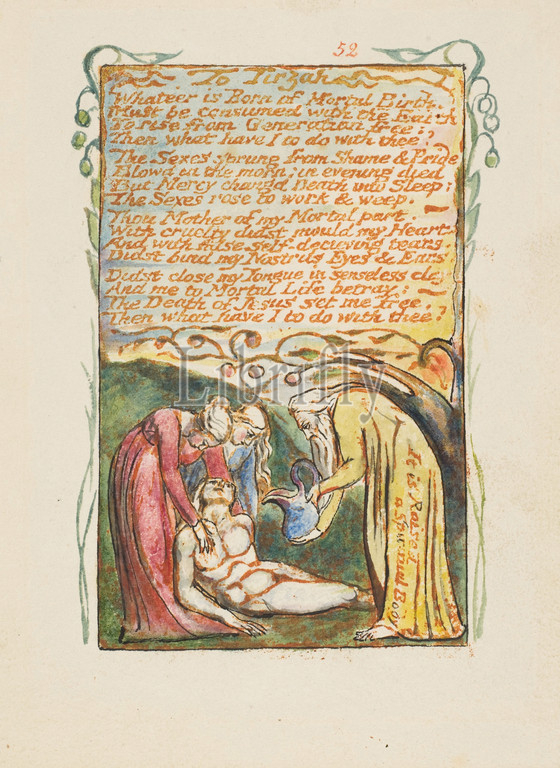 52
To Tirzah
Whateer is Born of Mortal Birth.
Must be consumed with the Earth
To rise from Generation free;
Then what have I to do with thee?
The Sexes sprung from Shame & Pride
Blowd in the morn; in evening died
But Mercy changd Death into Sleep;
The Sexes rose to work & weep.
Thou Mother of my Mortal part
With cruelty didst mould my Heart.
And with false self-decieving tears
Didst bind my Nostrils Eyes & Ears
Didst close my Tongue in senseless clay
And me to Mortal Life betray:
The Death of Jesus set me free,
Then what have I to do with thee?
Librifly
It is Raised
a Spiritual Body